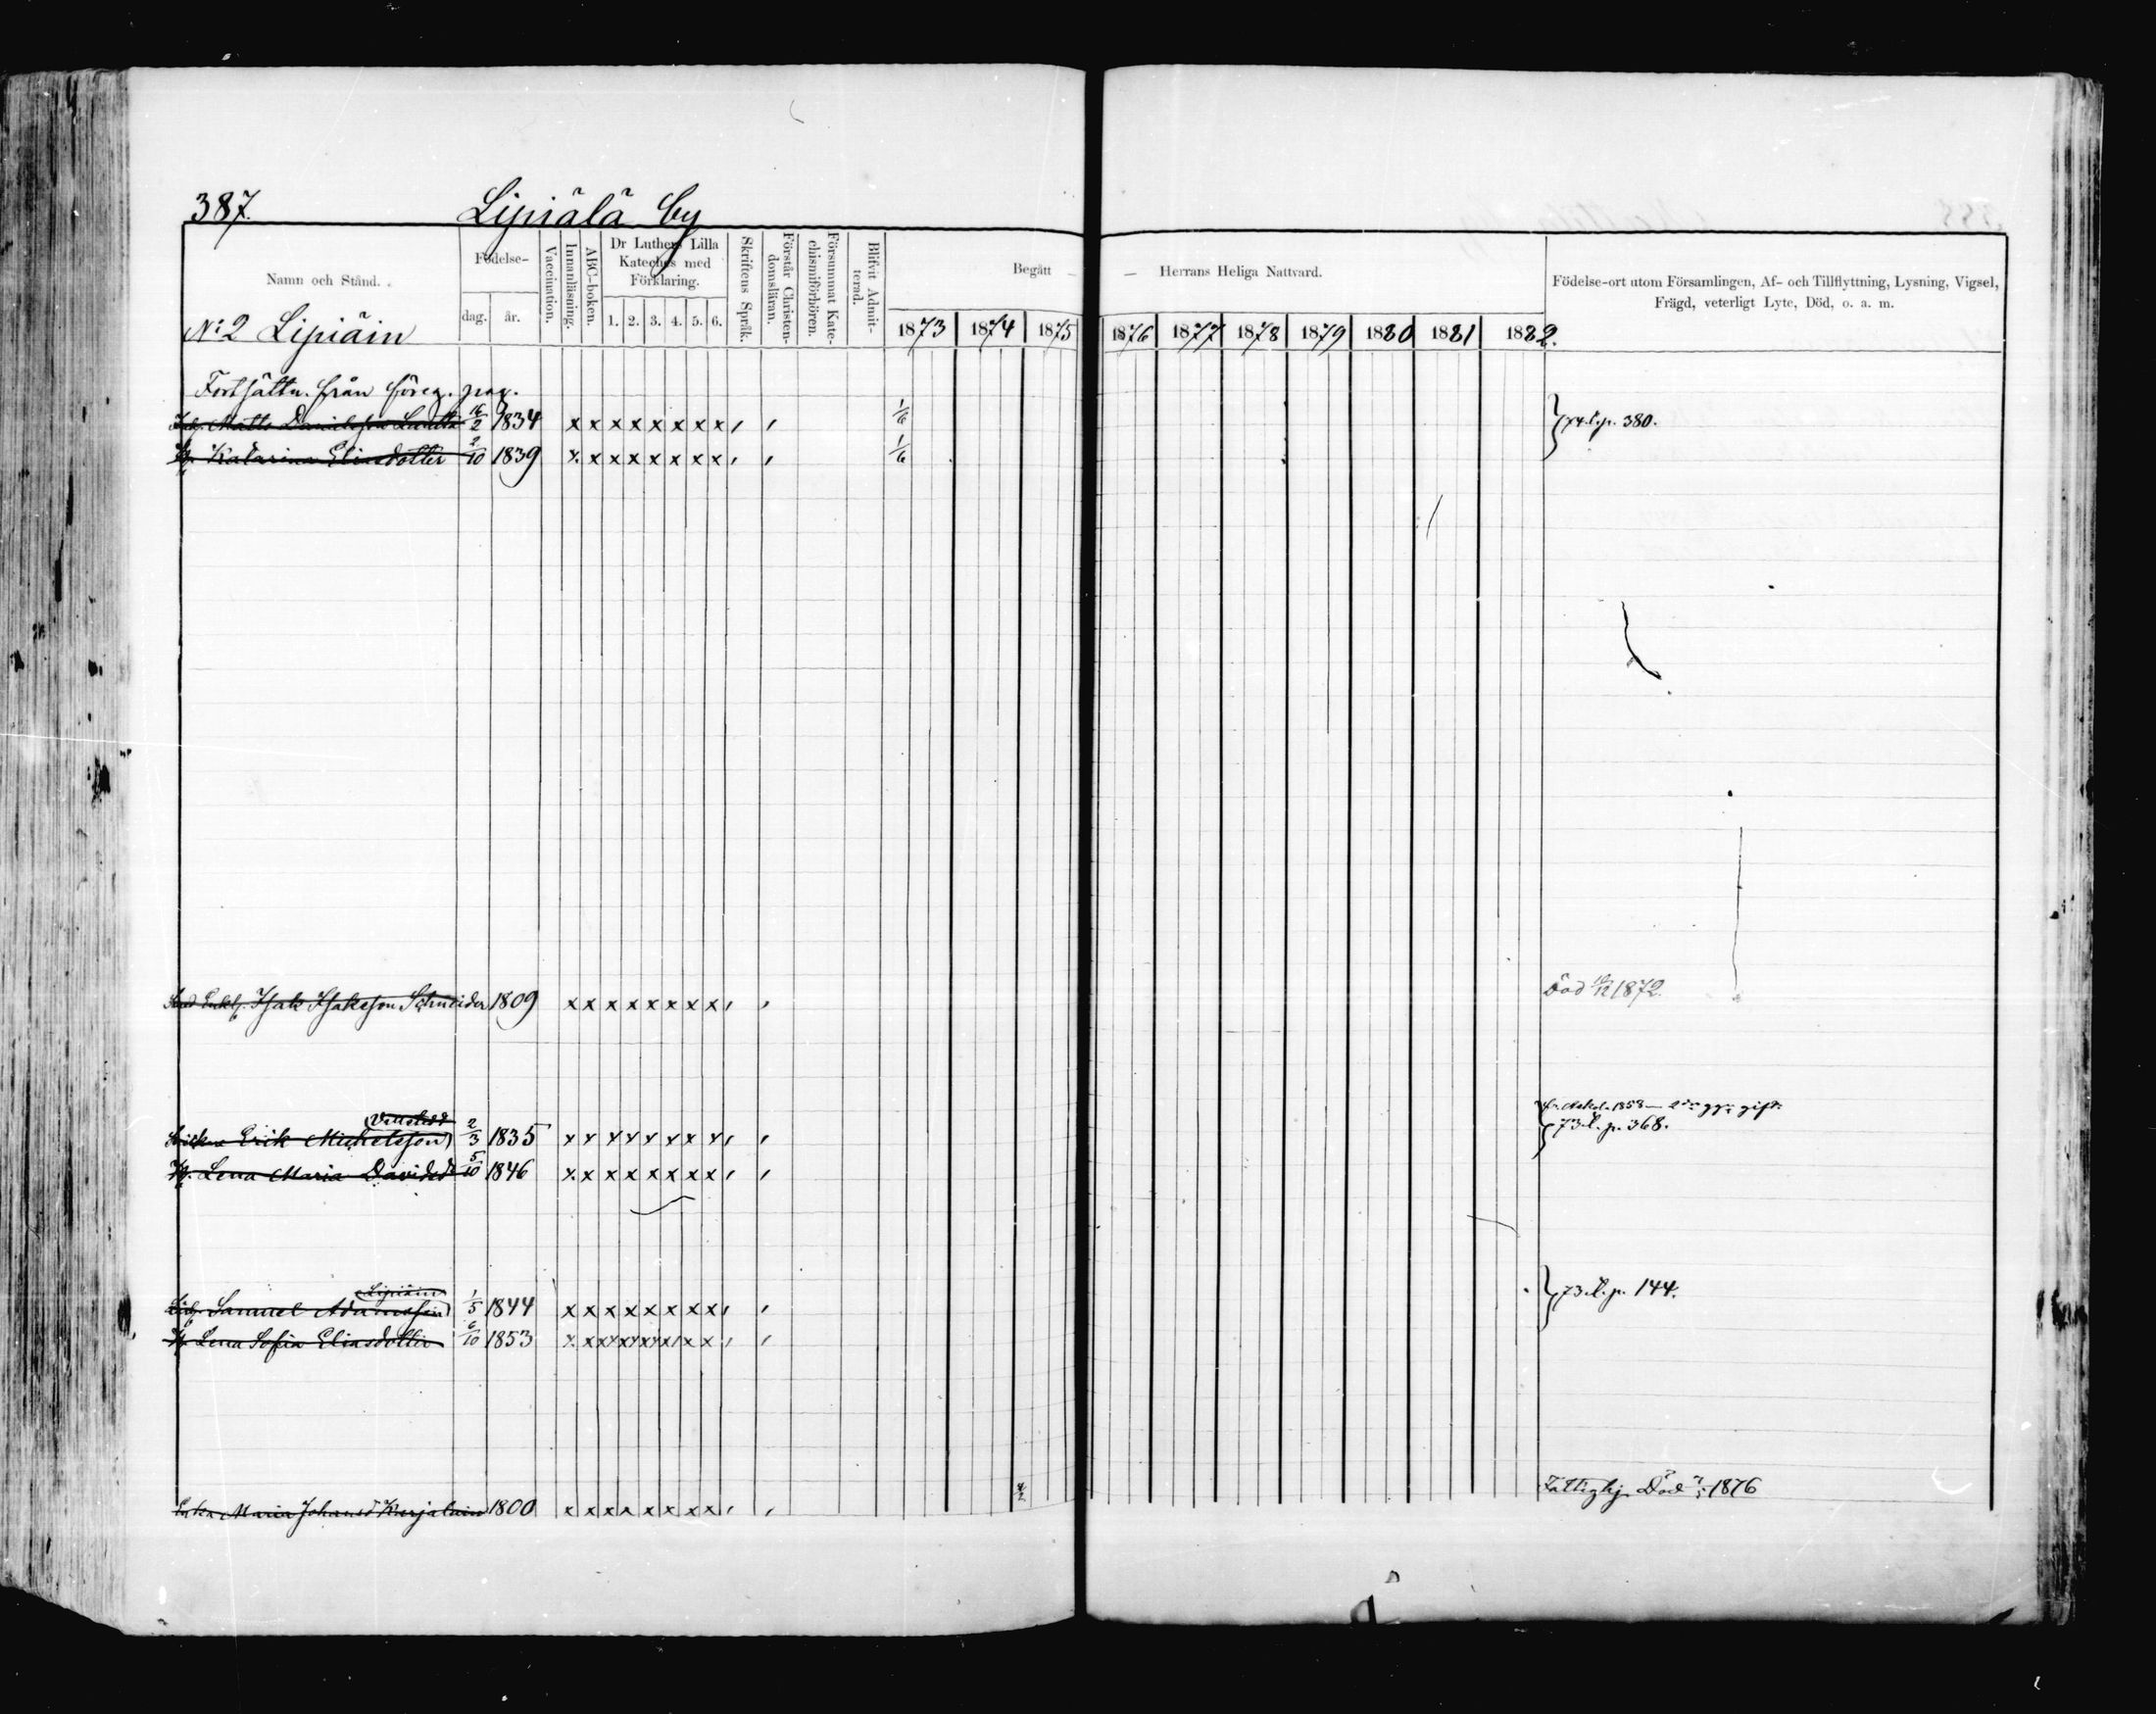 387.
Lipiälä by
Namn och Stånd.
Födelse-
dag.
år.
Vaccination.
Innanläsning.
ABC-boken.
Dr Luthers Lilla
Kateches med
Förklaring.
1. 2. 3. 4. 5. 6.
Skriftens Språk.
Förstår Christen-
domsläran.
Försummat Kate-
chismiförhören.
Blifvit Admit-
terad.
Begått — — Herrans Heliga Nattvard.
1873 1874 1875 1876 1877 1878 1879 1880 1881 1882.
Födelse-ort utom Församlingen, Af- och Tillflyttning, Lysning, Vigsel,
Frägd, veterligt Lyte, Död, o. a. m.
No 2 Lipiäin
Fortsättn. från föreg. pag.
Matts Danielsson 16/2 1834 x x x x x x x x 1/6 74 l. p. 380.
Katarina Eliasdotter 2/10 1839 x x x x x x x x 1/6
Isak Isaksson Schneider 1809 x x x x x x x x Död 1872.
Erik Michelsson 2/3 1835 x x x x x x x x 1858 — gift
73 l. p. 368.
Lena Maria Davidsd 5/10 1846 x x x x x x x x
Lipiäin
Samuel Adamsson 1/5 1844 x x x x x x x x 73 l. p. 144.
Lena Sofia Eliasdotter 6/10 1853
Maria Johansd Karjalain 1800 x x x x x x x x 4/2 Fattighj. Död 1876